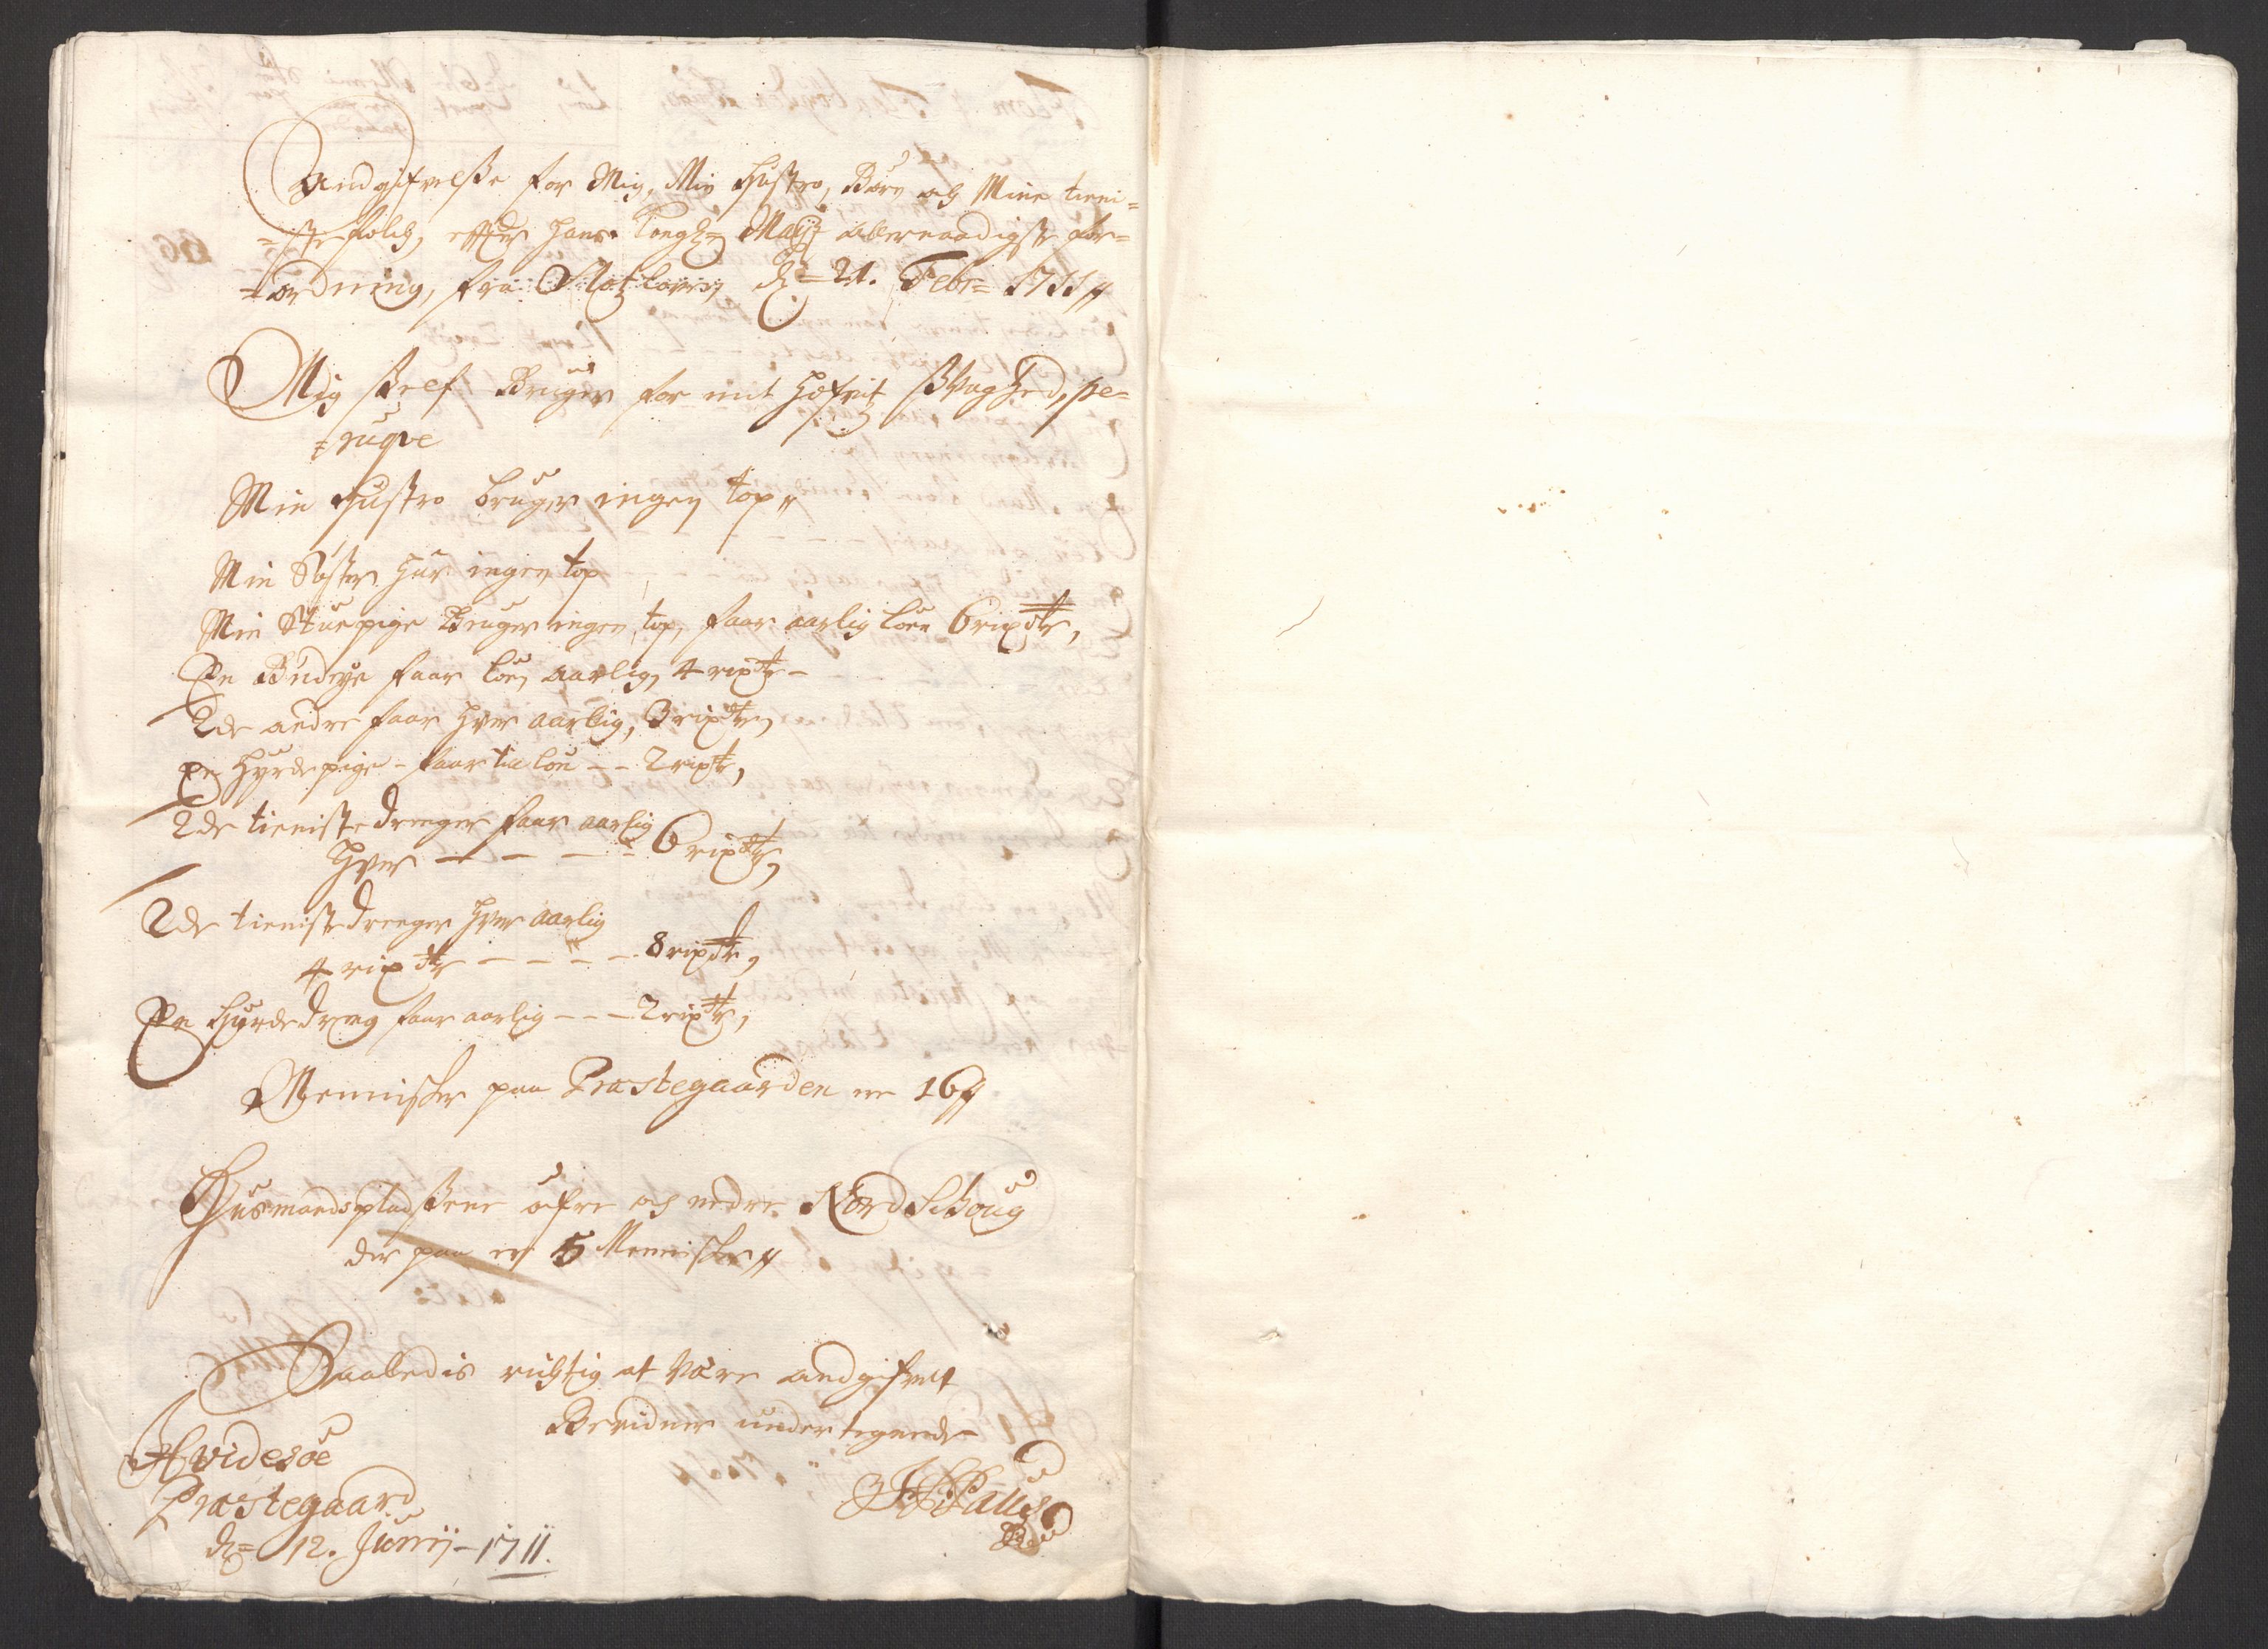 Andgifvelsse for Mig, Min Hustro, Børn og Mine tieni=
=stefolch, effter Hans Kongl: Maÿtz allernaadigste for=
=ordning, fra Slotzloven, d= 21. Febr= 1711//
Mig sielf Bruger for mit Hofvitz Svaghed, pe=
=ruqve
Min Hustro bruger ingen top//
Min Søster har ingen top
Min Stuepige Bruger ingen top, faar aarlig løn 6 rixdlr,
En Budeye faar løn aarlig, 4 rixdlr -
2de andre faar hver aarlig, 3 rixdlr,
En Hyrdepige - faar til løn - - 2 rixdlr,
2de tienistedrenger faar aarlig
hver - - - - 6 rixdlr,
2de tienistedrenger hver aarlig
4 rixdlr - - - - 8 rixdlr,
En Hyrdedreng faar aarlig - - - 2 rixdlr,
Mennisker paa Præstegaarden er 16//
Husmandspladssene øfre og nedre Nordschoug
der paa er 5 Mennisker//
Saaledis rigtig at være andgifvet
Bevidner undertegnede
Hvidesøe
Præstegaard
d= 12. Junij - 1711.
HPaus